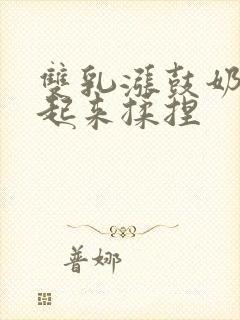 雙乳漲鼓奶
起来揉捏
普娜